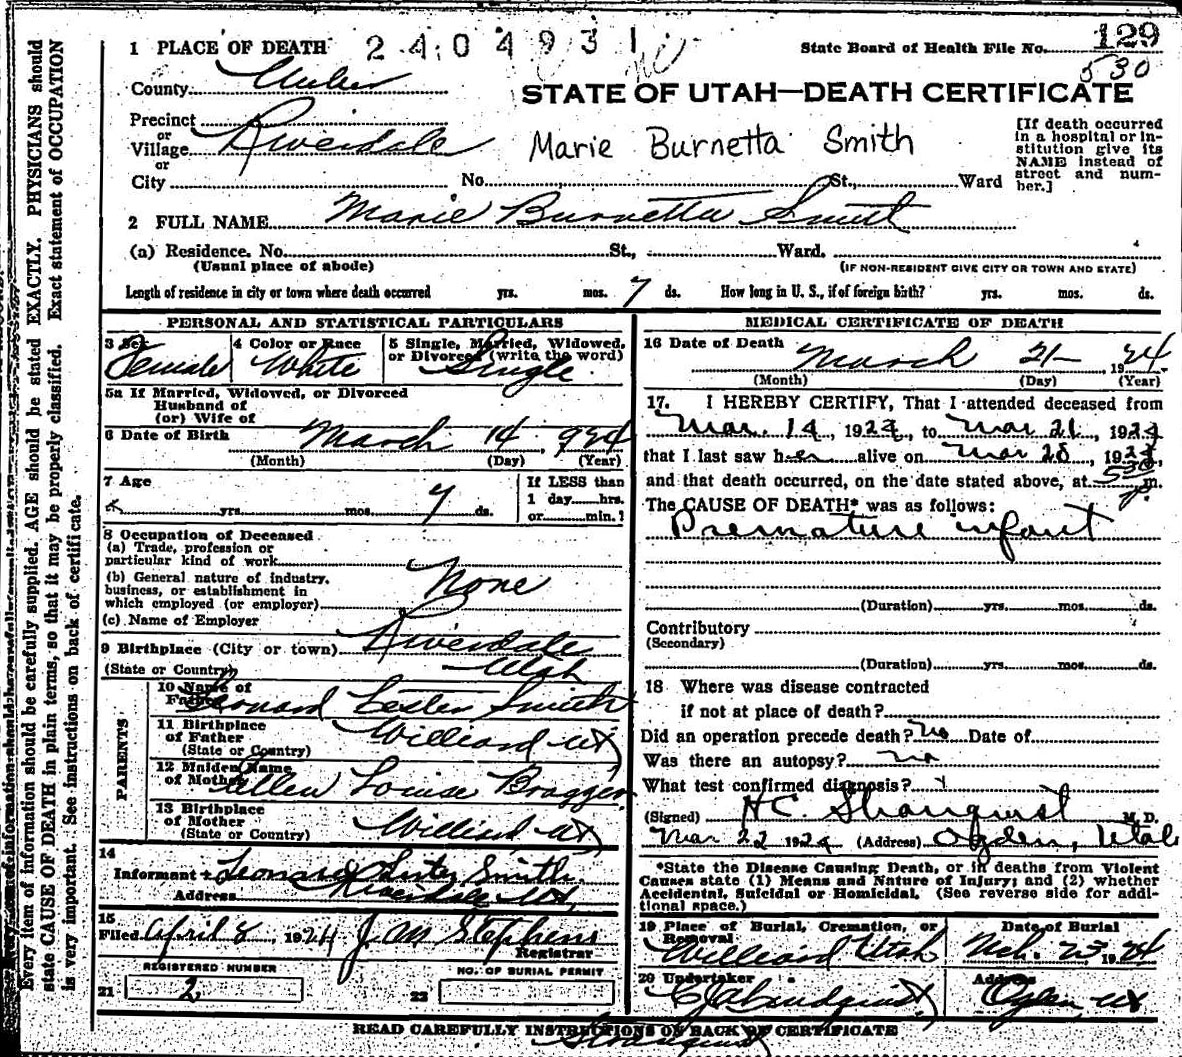 1 PLACE OF DEATH 2404931
State Board of Health File No. 129
530
County Weber
STATE OF UTAH—DEATH CERTIFICATE
Precinct
or
Village Riverdale
or
City No. St., Ward
Marie Burnetta Smith
[If death occurred
in a hospital or in-
stitution give its
NAME instead of
street and num-
ber.]
2 FULL NAME Marie Burnetta Smith
(a) Residence. No. St., Ward.
(Usual place of abode) (IF NON-RESIDENT GIVE CITY OR TOWN AND STATE)
Length of residence in city or town where death occurred yrs. mos. 7 ds. How long in U. S., if of foreign birth? yrs. mos. ds.
PERSONAL AND STATISTICAL PARTICULARS
3 Sex 4 Color or Race 5 Single, Married, Widowed,
or Divorced (write the word)
Female White Single
5a If Married, Widowed, or Divorced
Husband of
(or) Wife of
6 Date of Birth March 14, 924
(Month) (Day) (Year)
7 Age If LESS than
1 day hrs.
yrs. mos. 7 ds. or min.?
8 Occupation of Deceased
(a) Trade, profession or
particular kind of work
None
(b) General nature of industry,
business, or establishment in
which employed (or employer)
(c) Name of Employer
9 Birthplace (City or town) Riverdale
(State or Country) Utah
PARENTS
10 Name of
Father Leonard Lester Smith
11 Birthplace
of Father Willard Ut
(State or Country)
12 Maiden Name
of Mother Ellen Louise Bragger
13 Birthplace
of Mother Willard, Ut
(State or Country)
14
Informant Leonard Lester Smith
Address Riverdale Ut,
15
Filed April 8, 1924 J M Stephens
Registrar
REGISTERED NUMBER NO. OF BURIAL PERMIT
21 2 22
MEDICAL CERTIFICATE OF DEATH
16 Date of Death March 21- 1924
(Month) (Day) (Year)
17. I HEREBY CERTIFY, That I attended deceased from
Mar. 14, 1924, to Mar 21, 1924
that I last saw her alive on Mar 20, 1924,
and that death occurred, on the date stated above, at 530 P m.
The CAUSE OF DEATH* was as follows:
Premature infant
(Duration) yrs. mos. ds.
Contributory
(Secondary)
(Duration) yrs. mos. ds.
18 Where was disease contracted
if not at place of death?
Did an operation precede death? No Date of
Was there an autopsy? no
What test confirmed diagnosis?
(Signed) HC Stranquist M. D.
Mar 22 1924 (Address) Ogden, Utah
*State the Disease Causing Death, or in deaths from Violent
Causes state (1) Means and Nature of Injury; and (2) whether
Accidental, Suicidal or Homicidal. (See reverse side for addi-
tional space.)
19 Place of Burial, Cremation, or
Removal Date of Burial
Willard Utah Mch. 23, 1924
20 Undertaker Address
Ogden, Ut
READ CAREFULLY INSTRUCTIONS ON BACK OF CERTIFICATE
Every item of information should be carefully supplied. AGE should be stated EXACTLY. PHYSICIANS should
state CAUSE OF DEATH in plain terms, so that it may be properly classified. Exact statement of OCCUPATION
is very important. See instructions on back of certificate.